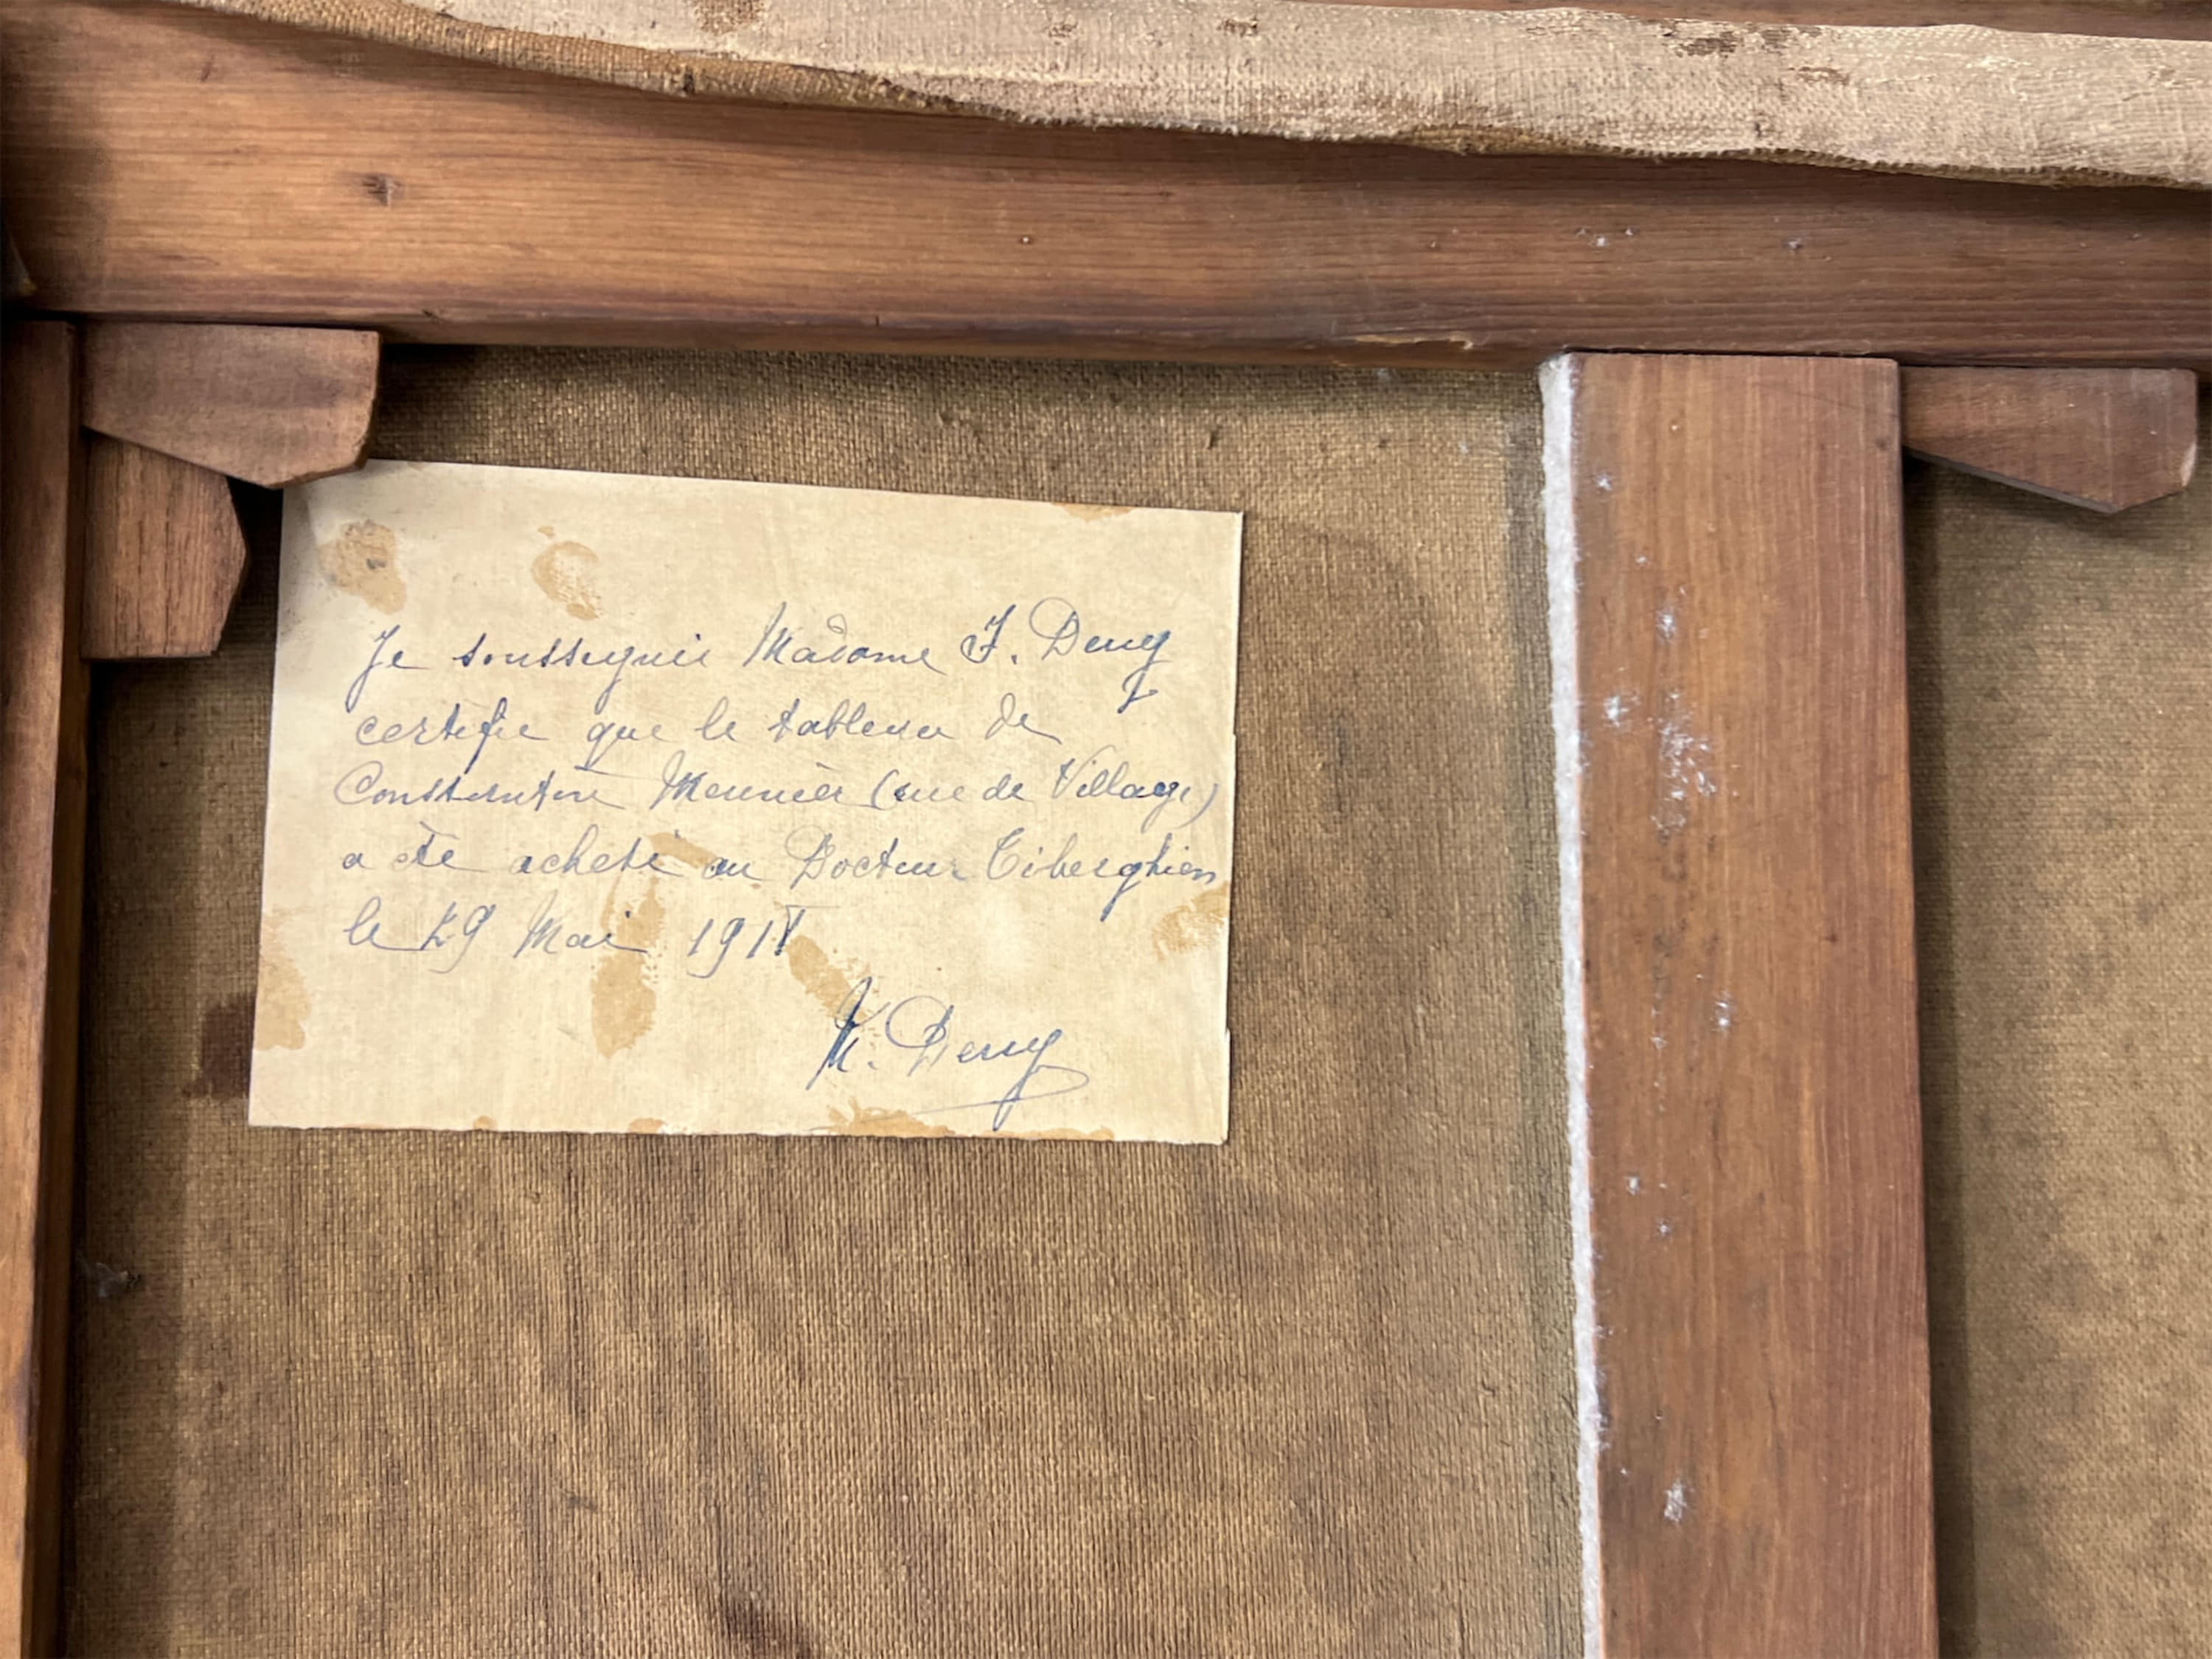 Je soussignée Madame J. Deny
certifie que le tableau de
Constantin Meunier (rue de Village)
a été acheté au Docteur Tiberghien
le 29 Mai 191
Deny